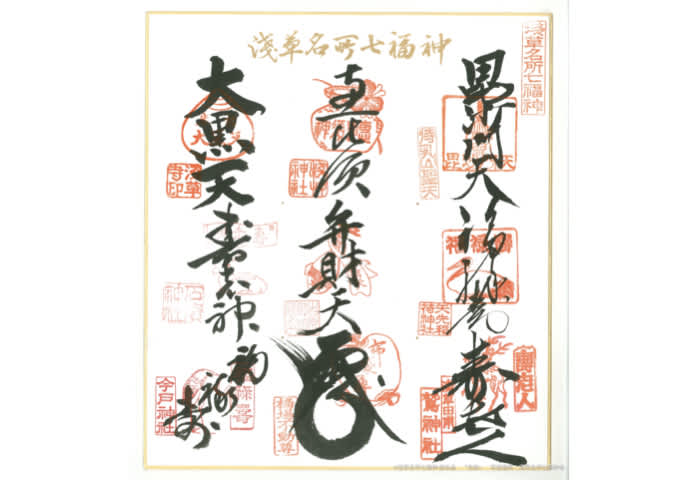 淺草名所七福神
淺草名所七福神
毘沙門天
福禄寿
寿老人
待乳山聖天
矢先稲荷神社
壽老人
鷲神社
恵比須
弁財天
橋場不動尊
大黒天
寿老神
福禄寿
浅草寺印
今戸神社